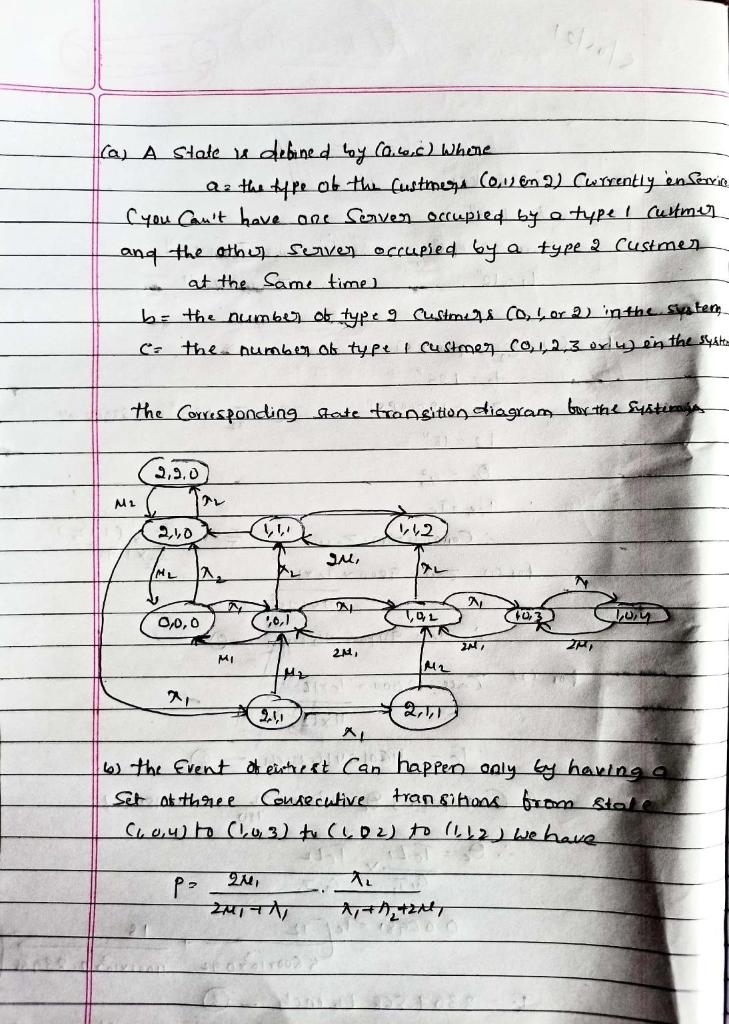 (a) A State is defined by (a.b.c) Where
a= the type ob the Custmers (0,1,or 2) Currently in Service
(you Can't have one Server occupied by a type 1 Custmer
and the other server occupied by a type 2 Custmer
at the Same time)
b= the number of type 2 Custmers (0,1,or 2) in the System
C= the number ob type 1 Custmer (0,1,2,3 or 4) in the syste
the Corresponding State transition diagram for the System
2,2,0
M2 λ2
2,1,0 1,1,1 1,1,2
2M1
M2 λ2 λ2 λ2
0,0,0 λ1 1,0,1 λ1 1,0,2 λ1 1,0,3 λ1 1,0,4
M1 2M1 2M1 2M1
M2 M2
λ1 2,1,1 2,1,1
λ1
b) the Event of Can happen only by having a
Set ob three Consecutive transitions from State
(1,0,4) to (1,0,3) to (1,0,2) to (1,1,2) we have
P= 2M1 / 2M1+λ1 . λ2 / λ1+λ2+2M1